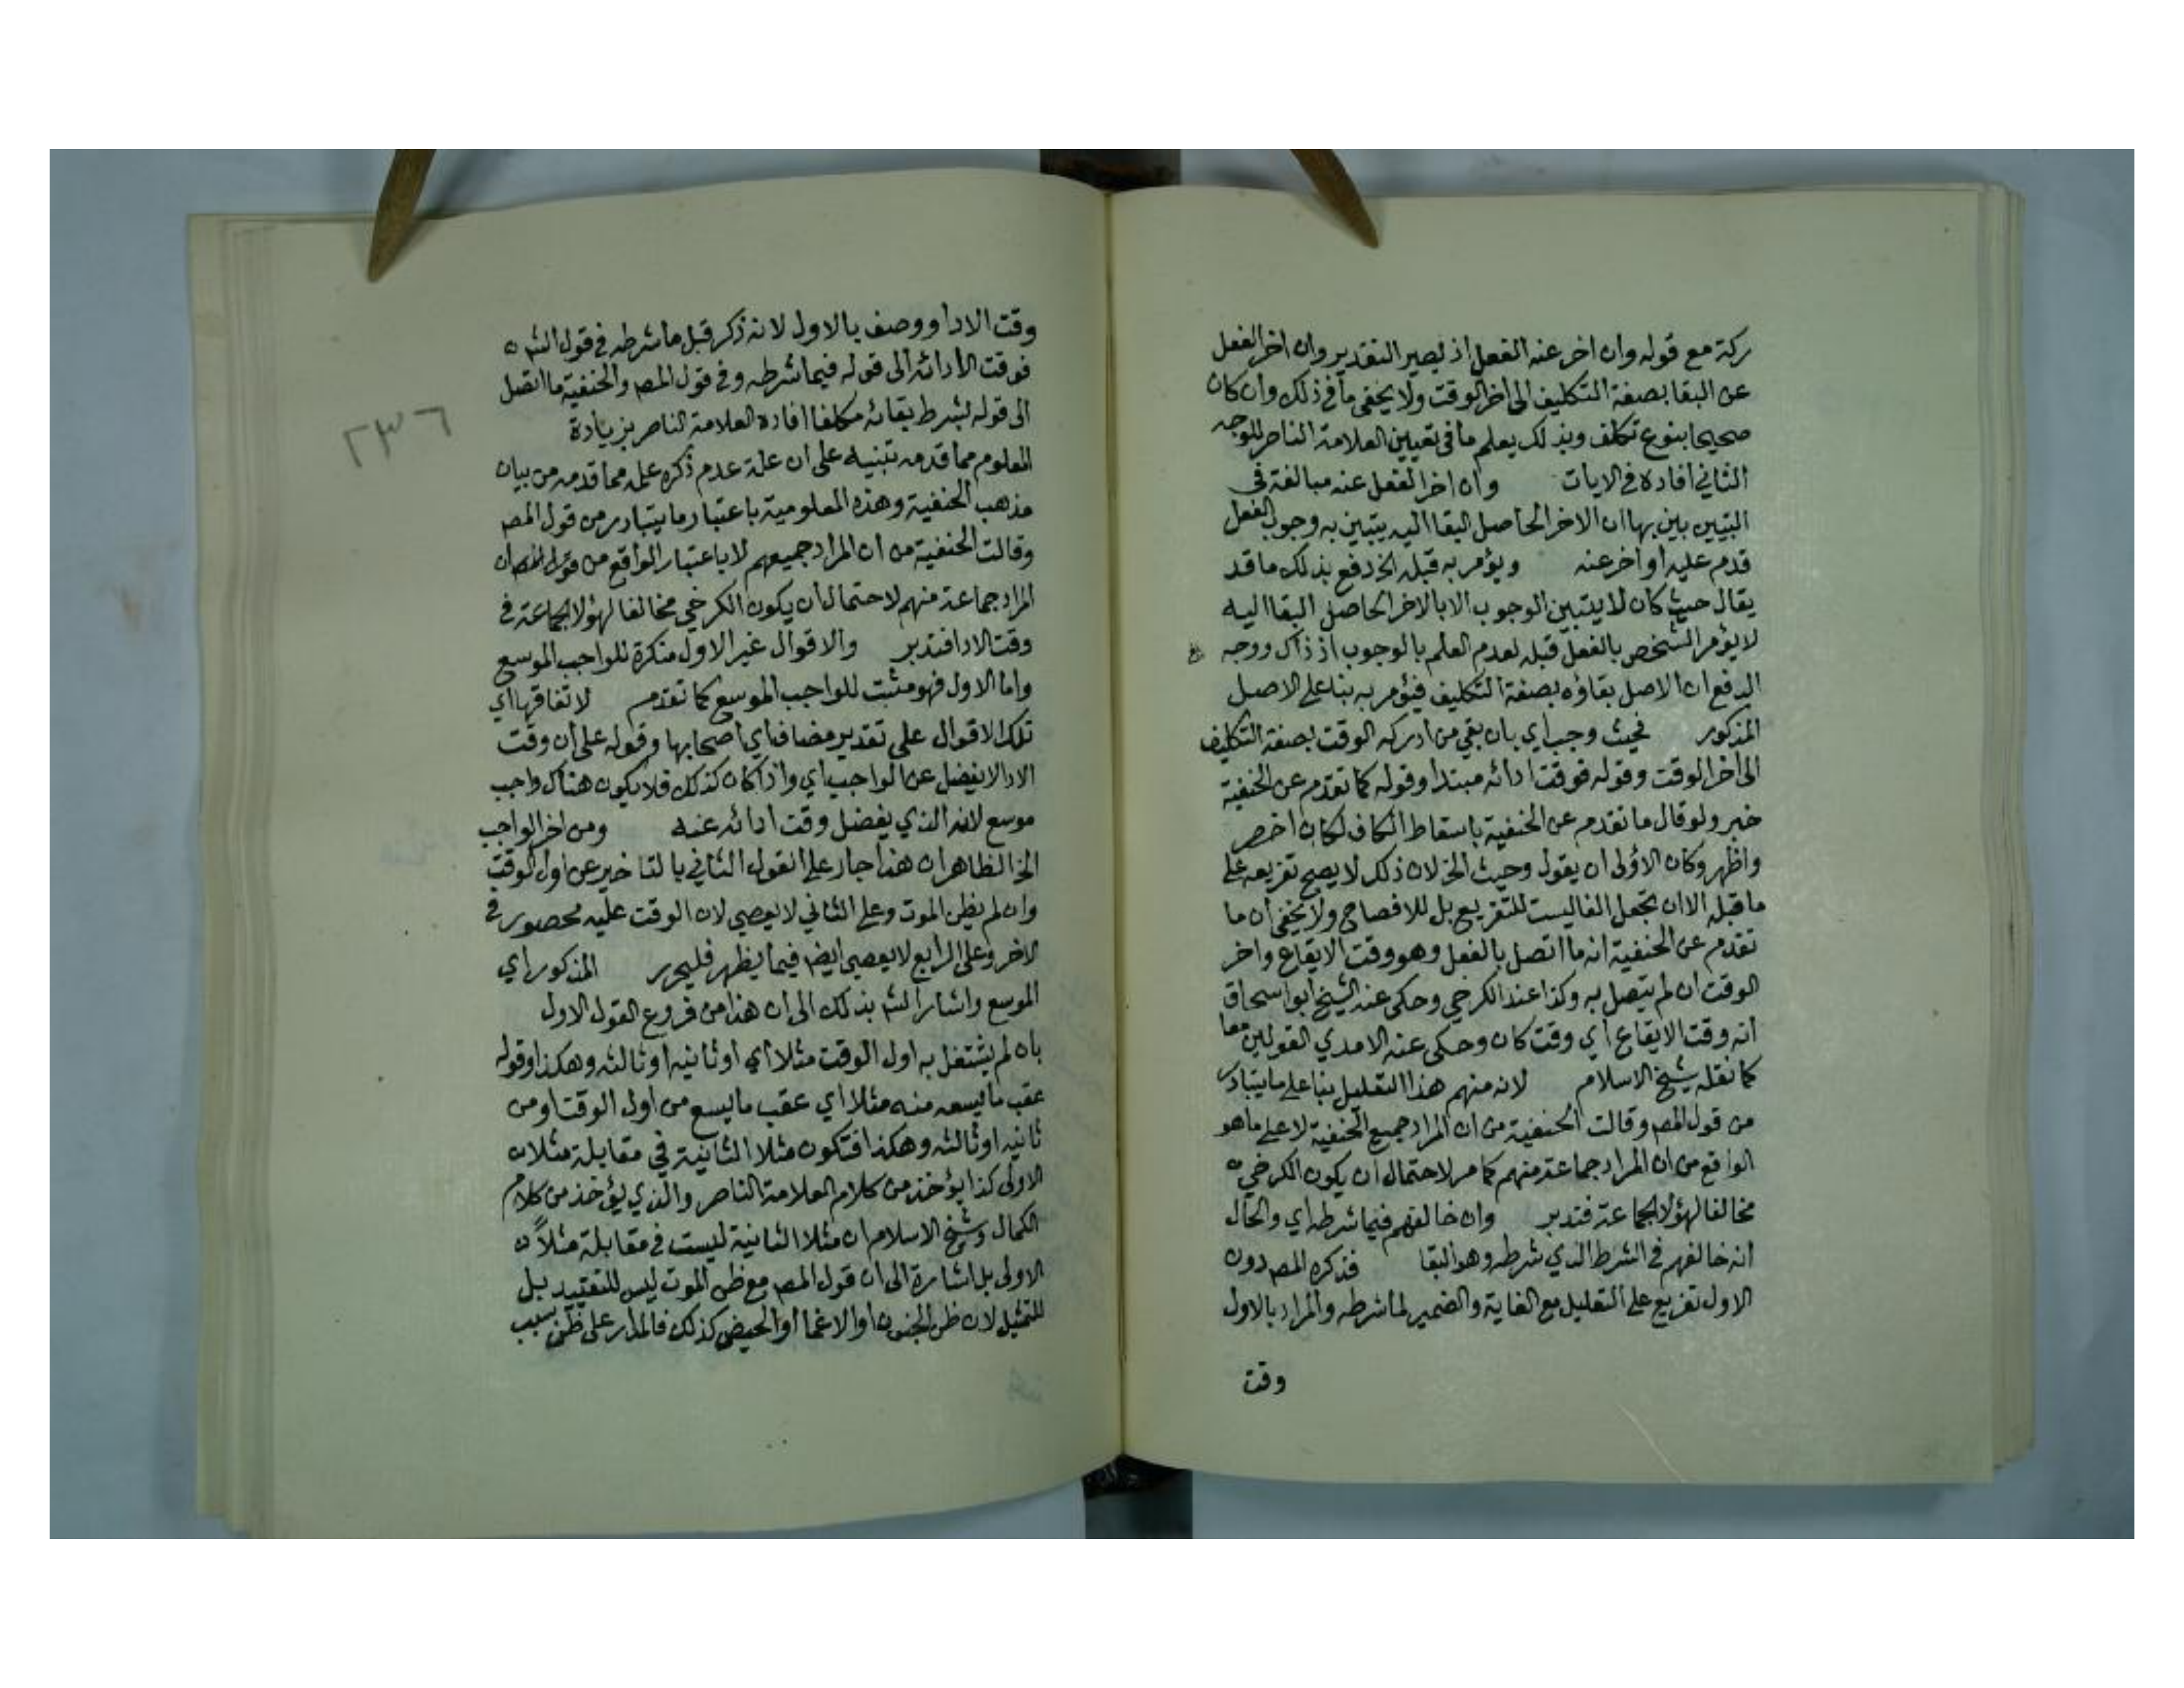 ركة مع قوله وان اخر عنه الفعل اذ يصير التقدير وان اخر الفعل
عن البقا بصفة التكليف الى اخر الوقت ولا يخفى ما في ذلك وان كان
صحيحا بنوع تكلف وبذلك يعلم ما في تعيين العلامة الناصر للوجه
الثاني افاده في الايات وان اخر الفعل عنه مبالغة في
التبين بين بها ان الاخر الحاصل البقا اليه يتبين به وجوب الفعل
قدم عليه او اخر عنه ويؤمر به قبله الخ دفع بذلك ما قد
يقال حيث كان لا يتبين الوجوب الا بالاخر الحاصل البقا اليه
لا يؤمر الشخص بالفعل قبله لعدم العلم بالوجوب اذ ذاك ووجه
الدفع ان الاصل بقاؤه بصفة التكليف فيؤمر به بنا على الاصل
المذكور فحيث وجب اي بان بقي من ادركه الوقت بصفة التكليف
الى اخر الوقت وقوله فوقت ادائه مبتدا وقوله كما تقدم عن الحنفية
خبر ولو قال ما تقدم عن الحنفية باسقاط الكاف لكان اخصر
واظهر وكان الاولى ان يقول وحيث الخ لان ذلك لا يصح تفريعه على
ما قبله الا ان تجعل الفا ليست للتفريع بل للافصاح ولا يخفى ان ما
تقدم عن الحنفية انه ما اتصل بالفعل وهو وقت الايقاع واخر
الوقت ان لم يتصل به وكذا عند الكرخي وحكى عنه الشيخ ابو اسحاق
انه وقت الايقاع اي وقت كان وحكى عنه الامدي القولين معا
كما نقله شيخ الاسلام لانه منهم هذا التعليل بنا على ما يتبادر
من قول المص وقالت الحنفية من ان المراد جميع الحنفية لا على ما هو
الواقع من ان المراد جماعة منهم كما مر لاحتمال ان يكون الكرخي
مخالفا لهؤلا الجماعة فتدبر وان خالفهم فيما شرطه اي والحال
انه خالفهم في الشرط الذي شرطه وهو البقا فذكره المص دون
الاول تفريع على التعليل مع الغاية والضمير لما شرطه والمراد بالاول
وقت
وقت الادا ووصف بالاول لانه ذكر قبل ما شرطه في قول الش
فوقت الادائه الى قوله فيما شرطه وفي قول المص والحنفية ما اتصل
الى قوله بشرط بقائه مكلفا افاده العلامة الناصر بزيادة
المعلوم مما قدمه تنبيه على ان علة عدم ذكره علمه مما قدمه من بيان
مذهب الحنفية وهذه المعلومية باعتبار ما يتبادر من قول المص
وقالت الحنفية من ان المراد جميعهم لا باعتبار الواقع من قوله المص ان
المراد جماعة منهم لاحتمال ان يكون الكرخي مخالفا لهؤلا الجماعة في
وقت الادا فتدبر والاقوال غير الاول منكرة للواجب الموسع
واما الاول فهو مثبت للواجب الموسع كما تقدم لاتفاقها اي
تلك الاقوال على تقدير مضاف اي اصحابها وقوله على ان وقت
الادا لا يفضل عن الواجب اي واذا كان كذلك فلا يكون هناك واجب
موسع لانه الذي يفضل وقت ادائه عنه ومن اخر الواجب
الخ الظاهر ان هذا جار على القول الثاني بالتاخير عن اول الوقت
وان لم يظن الموت وعلى الثاني لا يعصي لان الوقت عليه محصور في
الاخر وعلى الرابع لا يعصي ايض فيما يظهر فليحرر المذكور اي
الموسع واشار الش بذلك الى ان هذا من فروع القول الاول
بان لم يشتغل به اول الوقت مثلا اي او ثانيه او ثالثه وهكذا وقوله
عقب ما يسعه منه مثلا اي عقب ما يسع من اول الوقت او من
ثانيه او ثالثه وهكذا فتكون مثلا الثانية في مقابلة مثلا
الاولى كذا يؤخذ من كلام العلامة الناصر والذي يؤخذ من كلام
الكمال وشيخ الاسلام ان مثلا الثانية ليست في مقابلة مثلا
الاولى بل اشارة الى ان قول المص مع ظن الموت ليس للتقييد بل
للتمثيل لان ظن الجنون او الاغما او الحيض كذلك فالمدار على ظن سبب
٢٣٦